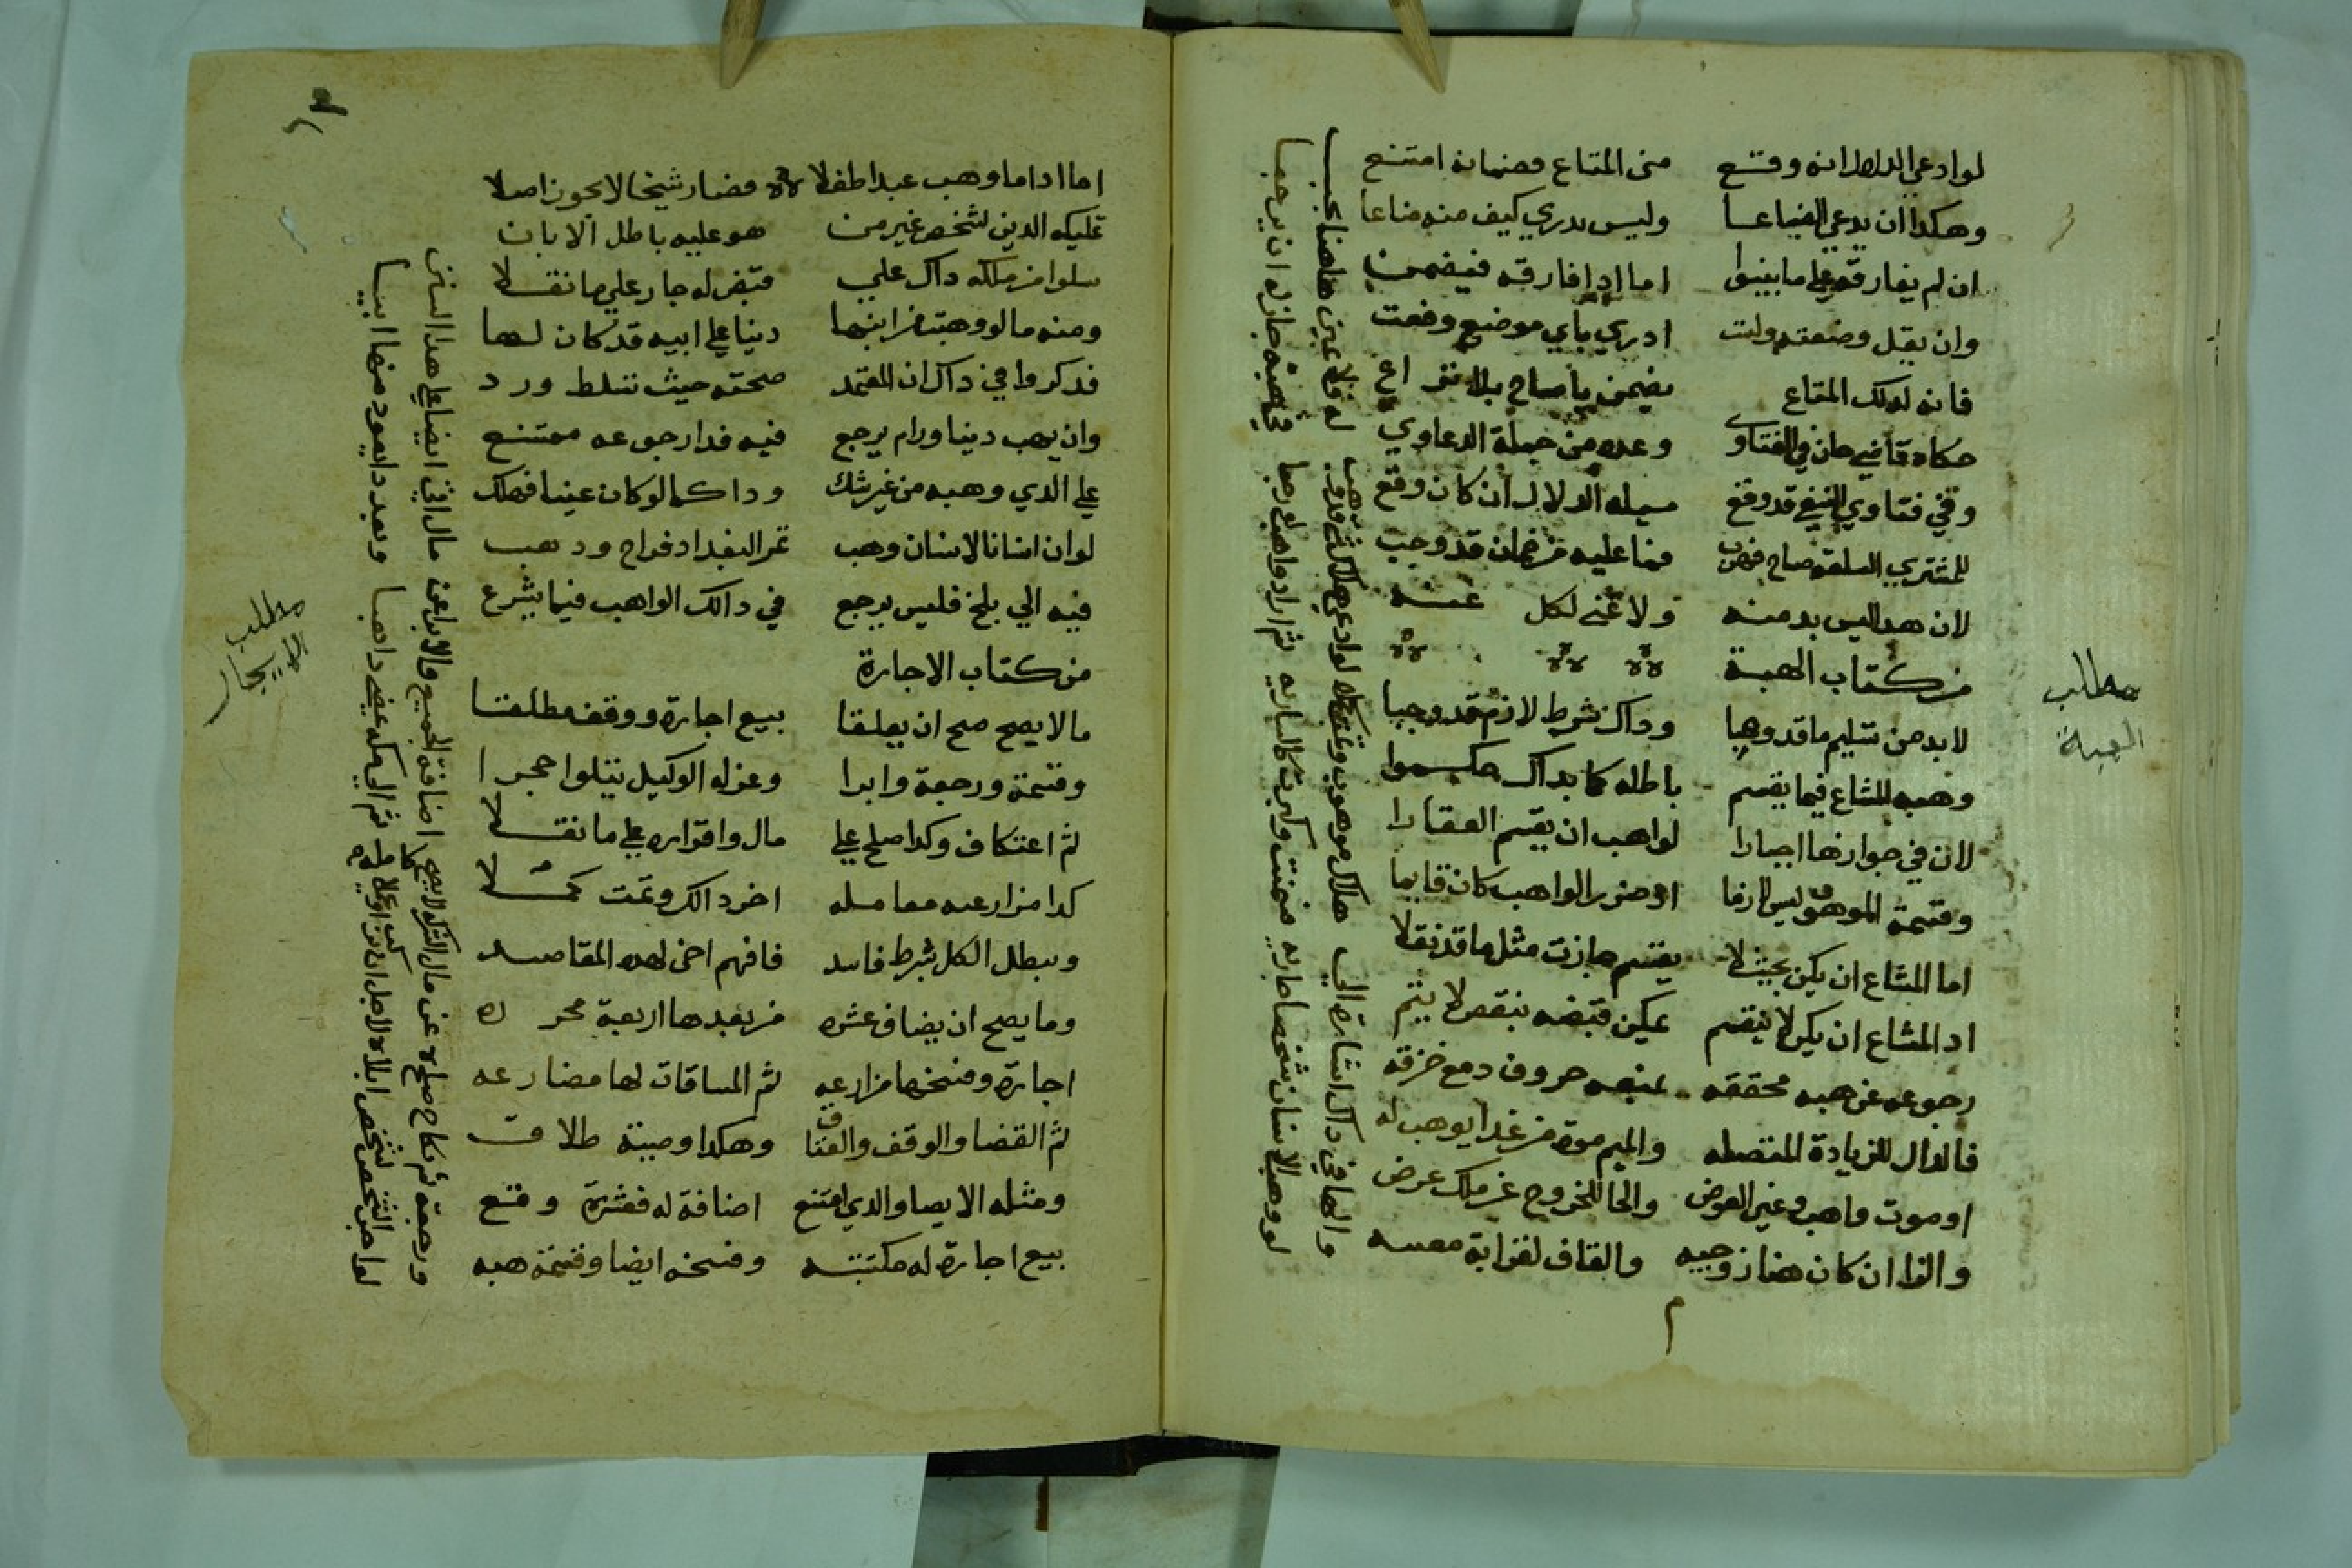 لو ادعى الدلال انه وقع منى المتاع فضمانه امتنع
وهكدا ان يدعي الضياعا وليس يدري كيف منه ضاعا
ان لم يفارقه على ما بينوا اما ادا فارقه فيضمن
وان يقل وضعته ولست ادري باي موضع وضعت
فانه لدلك المتاع يضمن يا صاح بلا نزاع
حكاه قاضي خان في الفتاوى وعده من جملة الدعاوي
وفي فتاوي الشيخ قد وقع مسيله الدلال ان كان وقع
للمشتري السلعه صاح فهرب فما عليه من ضمان قد وجب
لان هدا ليس بد منه ولا غنى لكل عنه
من كتاب الهبة
لا بد من تسليم ما قد وهبا وداك شرط لازم قد وجبا
وهبه المشاع فيما يقسم باطله كما بداك حكموا
لان في جوازها اجبارا لواهب ان يقسم العقارا
وقسمة الموهوب ليس لازما او ضرر الواهب كان قايما
اما المشاع ان يكن بحيث لا يقسم جازت مثل ما قد نقلا
اد المشاع ان يكن لا ينقسم يمكن قبضه بنقص لا يتم
رجوعه عن هبه محققه يمنعه حروف دمع خزقه
فالدال للزيادة المتصله والميم موت من غدا يوهب له
او موت واهب وعين العوض والخا للخروج عن ملك عرض
والزا ان كان هنا زوجيه والقاف لقرابة
والها في داك اشارة الي هلاك موهوب
لو وهب الانسان شخصا جاريه فسمنت وكبرت كالساريه ثم اراد واهب لو رجعا في هبة جاز له ان يرجعا
مطلب
الهبة
اما ادا ما وهب عبدا طفلا فصار شيخا لا يجوز اصلا
تمليكه الدين لشخص غير من هو عليه باطل الا بان
سلوا من ملكه داك علي قبض له جاز علي ما نقلا
ومنه ما لو وهبت من ابنها دينا على ابيه قد كان لها
فدكروا في داك ان المعتمد صحته حيث تسلط ورد
وان يهب دينا ورام يرجع فيه فدا رجوعه ممتنع
على الدي وهبه من غير شك وداك كما لو كان عينا فهلك
لو ان انسانا لانسان وهب تمرا لبغداد فراح ودهب
فيه الي بلخ فليس يرجع في دالك الواهب فيما يشرع
من كتاب الاجارة
ما لا يصح صح ان يعلقا بيع اجارة ووقف مطلقا
وقسمة ورجعة وابرا وعزله الوكيل يتلوا حجرا
ثم اعتكاف وكدا صلح على مال واقراره على ما نقلا
كدا مزارعه معامله اخر دالك وتمت كملا
ويبطل الكل بشرط فاسد فافهم اخي لهده المقاصد
وما يصح ان يضاف عشره من بعدها اربعة محرره
اجارة وفسخها مزارعه ثم المساقات لها مضارعه
ثم القضا والوقف والعتاق وهكدا وصية طلاق
ومثله الايصا والدي امتنع اضافة له فعشرة وقع
بيع اجازة له مكتبته وفسخه ايضا وقسمة هبه
ورجعة ثم نكاح صلح عن مال الشركة لا يصح اضافة الجميع والابرا عن مال
مطلب
الايجار